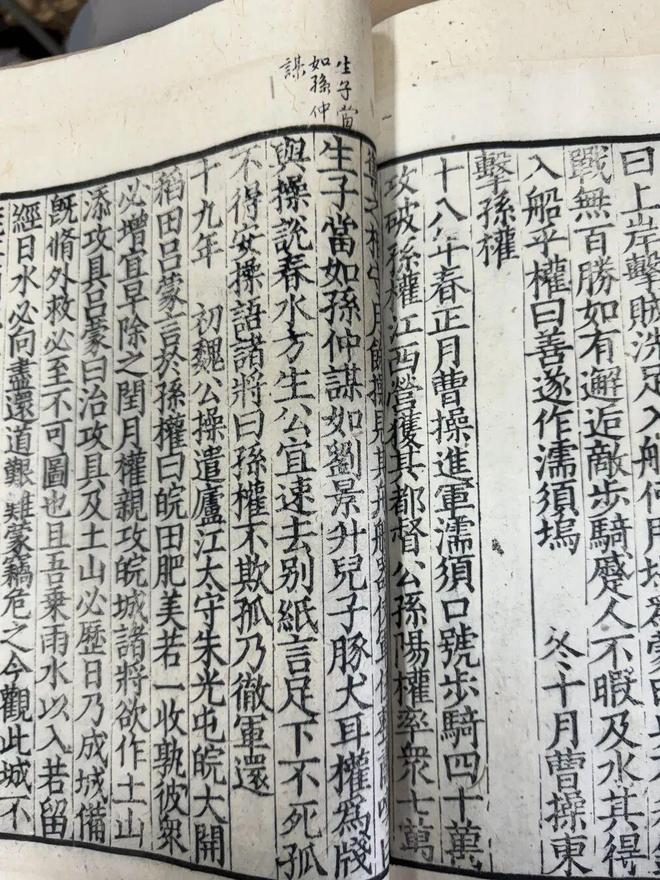 曰上岸擊賊洗足入船何用塢爲蒙曰
戰無百勝如有邂逅敵步騎蹙人不暇及水其得
入船乎權曰善遂作濡須塢　冬十月曹操東
擊孫權
十八年春正月曹操進軍濡須口號步騎四十萬
攻破孫權江西營獲其都督公孫陽權率衆七萬
之相守月餘操見其舟船器仗
生子當
如孫仲
謀
生子當如孫仲謀如劉景升兒子豚犬耳權爲牋
與操說春水方生公宜速去别紙言足下不死孤
不得安操語諸將曰孫權不欺孤乃徹軍還
十九年　初魏公操遣廬江太守朱光屯皖大開
稻田吕蒙言於孫權曰皖田肥美若一收孰彼衆
必增宜早除之閏月權親攻皖城諸將欲作土山
添攻具吕蒙曰治攻具及土山必歷日乃成城備
旣脩外救必至不可圖也且吾乗雨水以入若留
經日水必向盡還道艱難蒙竊危之今觀此城不